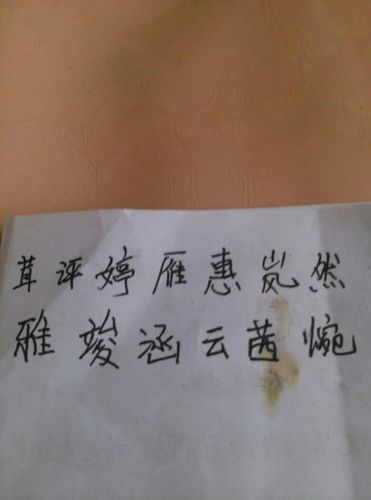 茸评婷雁惠岚然
雅竣涵云茜惋